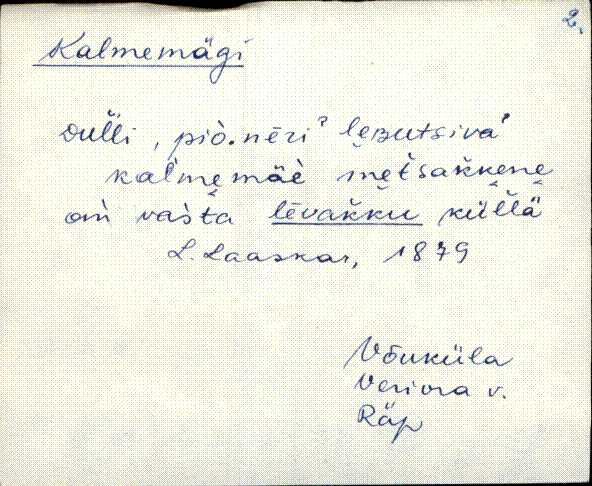 2.
Kalmemägi
oľľi, piò.nēri? lebutsivaˀ
kalmemäè metsakkene
om vašta lēvakku küllä
L. Laaskar, 1879
Võuküla
Veriora v.
Räp